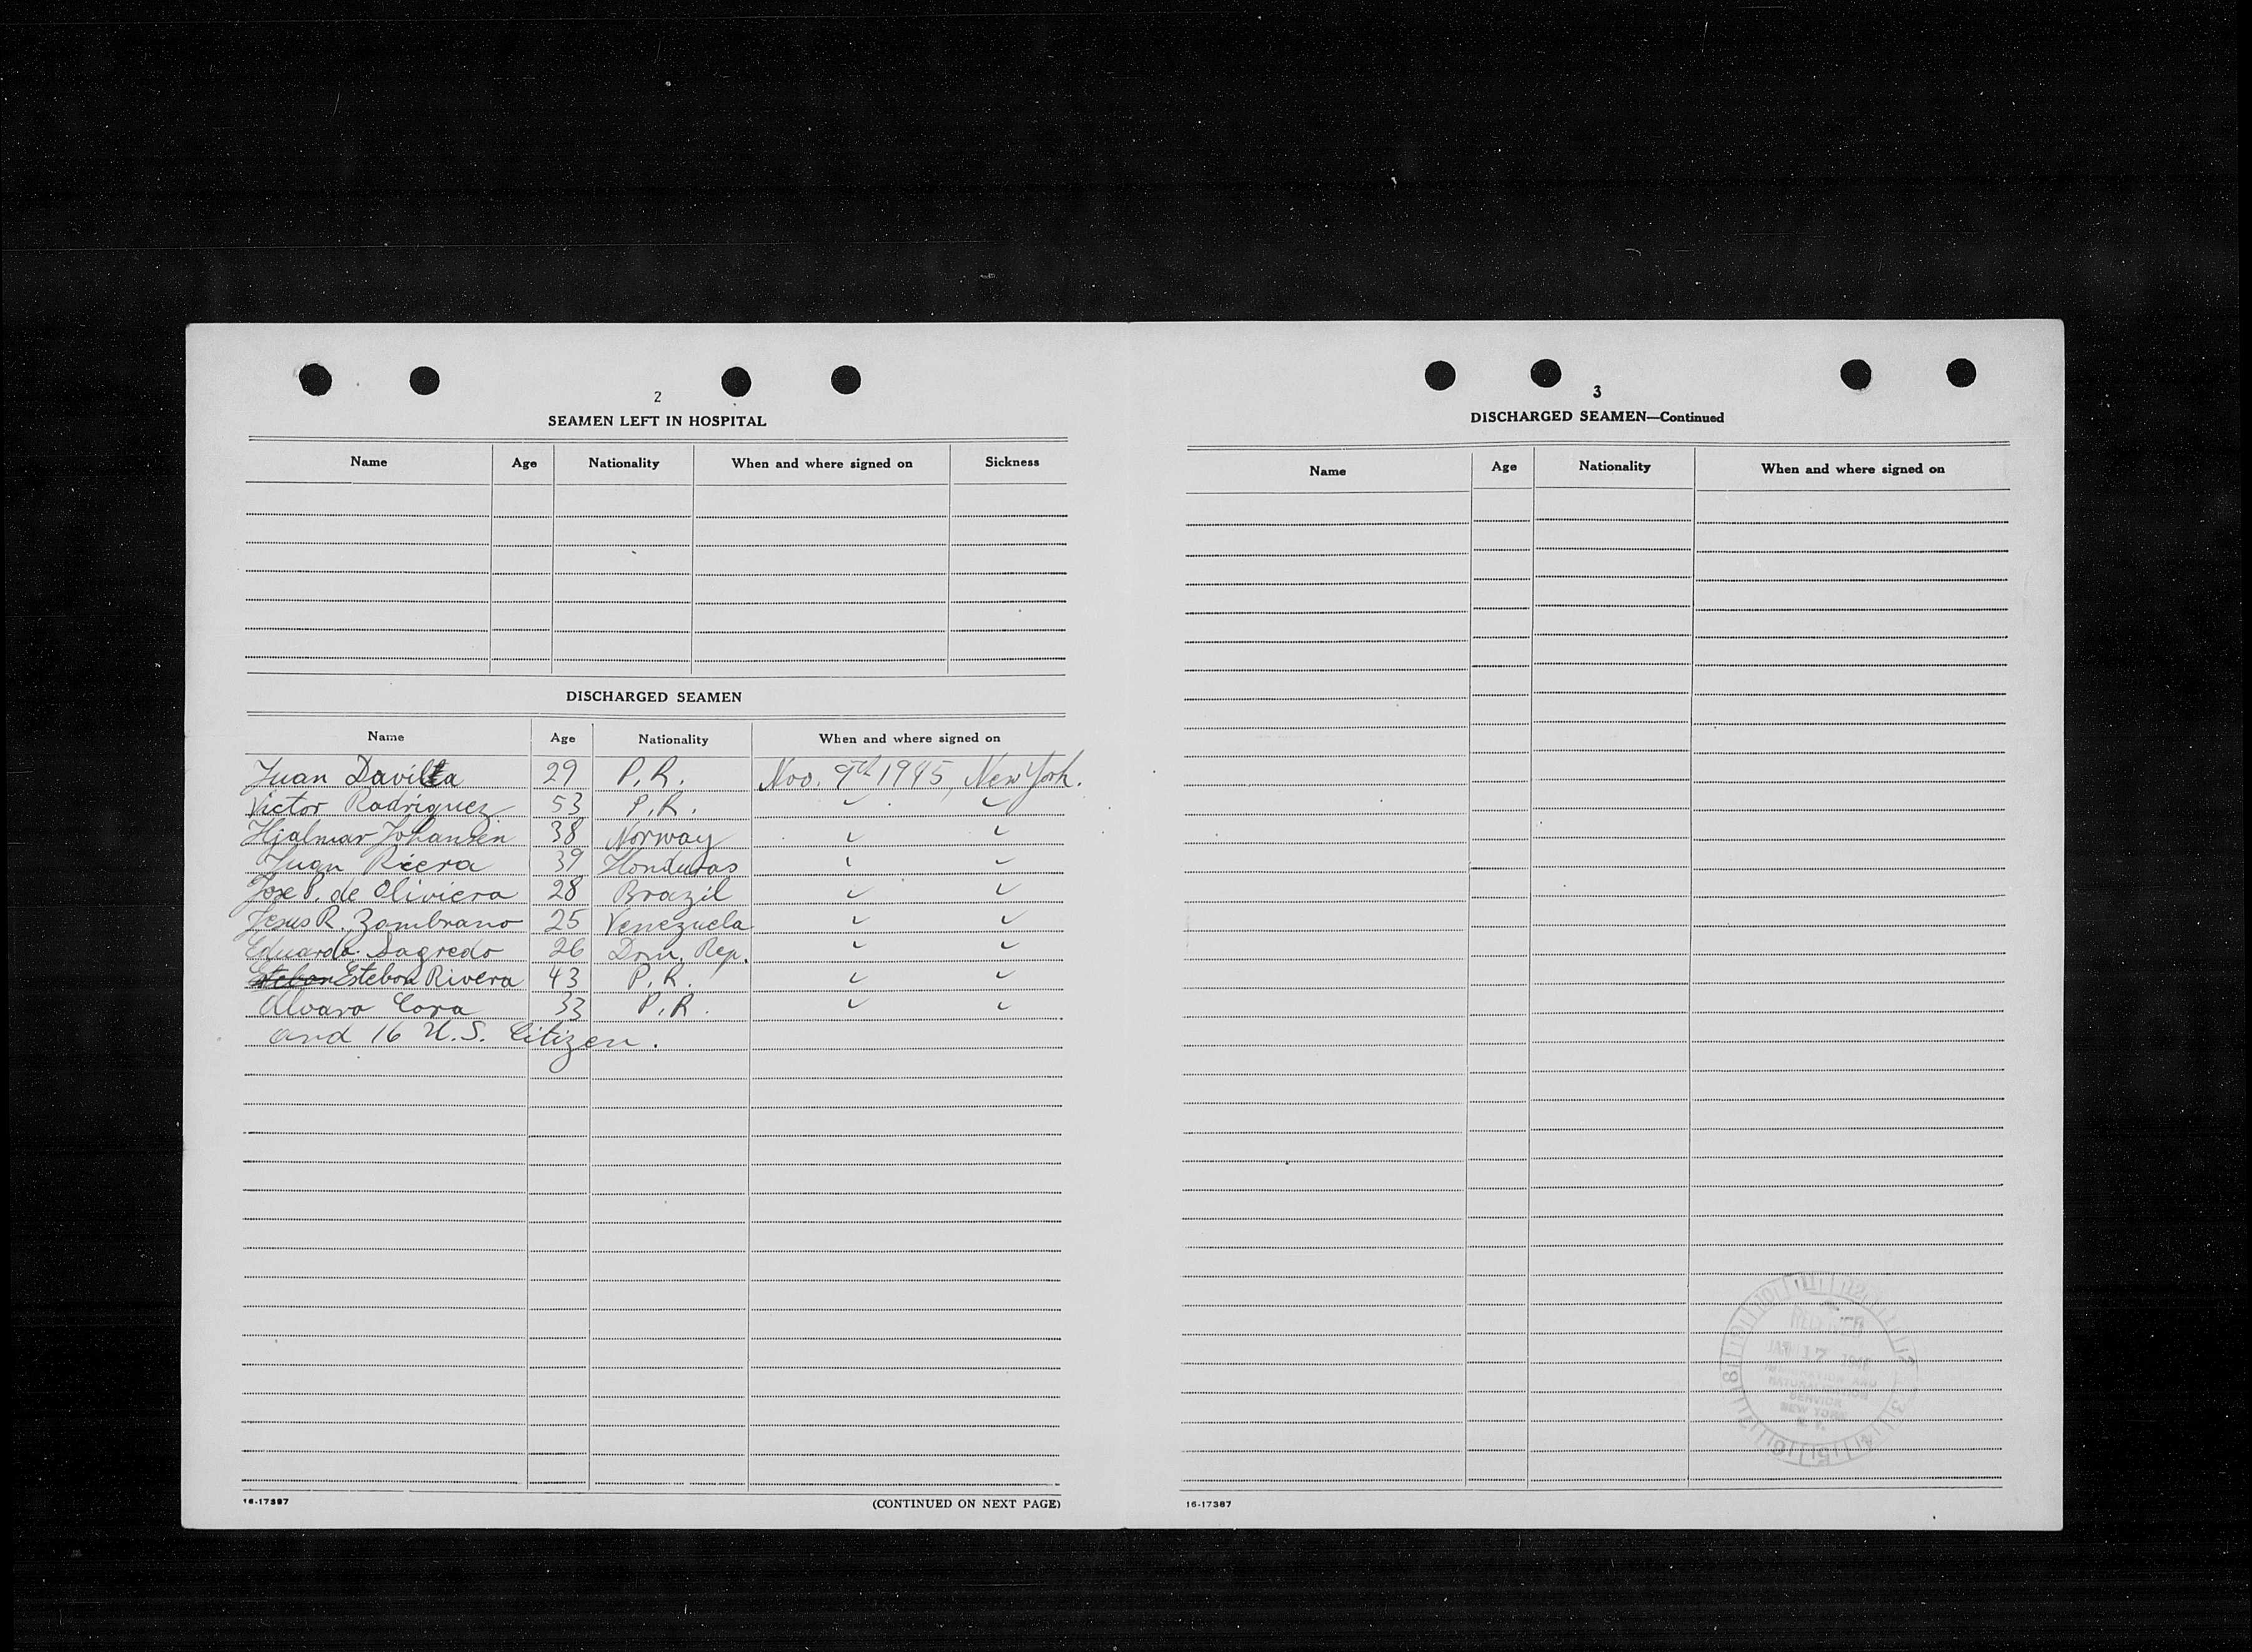 2
SEAMEN LEFT IN HOSPITAL
Name Age Nationality When and where signed on Sickness
DISCHARGED SEAMEN
Name Age Nationality When and where signed on
Juan Davilla 29 P.R. Nov. 9th 1945, New York.
Victor Rodriguez 53 P.R. ✓ ✓
Hjalmar Johansen 38 Norway ✓ ✓
Juan Riera 39 Honduras ✓ ✓
Jose P. de Oliviera 28 Brazil ✓ ✓
Jesus R. Zambrano 25 Venezuela ✓ ✓
Eduardo Sagredo 26 Dom. Rep. ✓ ✓
Esteban Rivera 43 P.R. ✓ ✓
Alvaro Cora 33 P.R. ✓ ✓
and 16 U.S. Citizen.
16-17387
(CONTINUED ON NEXT PAGE)
3
DISCHARGED SEAMEN—Continued
Name Age Nationality When and where signed on
RECEIVED
JAN 17 1946
IMMIGRATION AND
NATURALIZATION
SERVICE
NEW YORK
N. Y.
16-17387